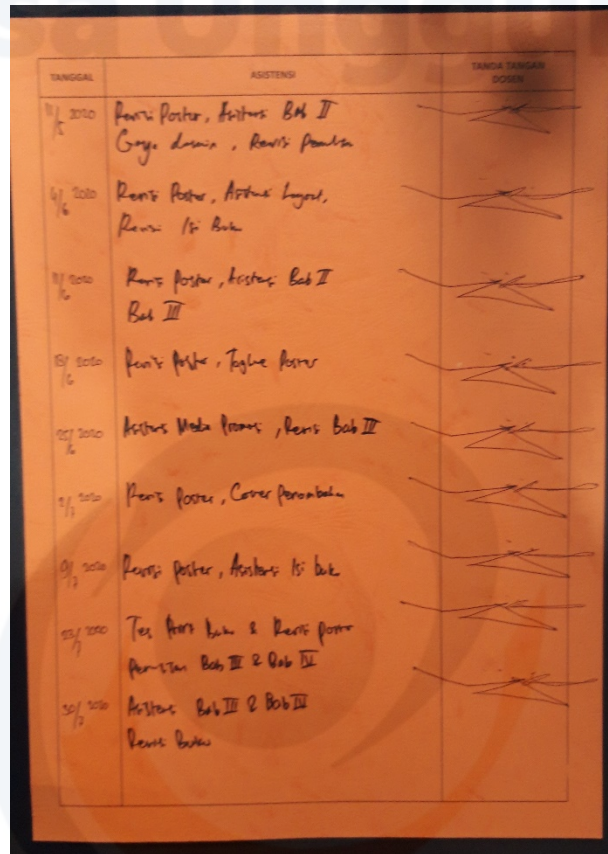 TANGGAL ASISTENSI TANDA TANGAN DOSEN
2020 Revisi Poster, Asistensi Bab II
Gaya desain, Revisi
4/6 2020 Revisi Poster, Asistensi Layout,
Revisi Isi Buku
11/6 2020 Revisi Poster, Asistensi Bab II
Bab III
18/6 2020 Revisi Poster, Tagline Poster
25/6 2020 Asistensi Media Promosi, Revisi Bab III
2/7 2020 Revisi Poster, Cover
9/7 2020 Revisi poster, Asistensi Isi buku
23/7 2020 Tes Print buku & Revisi poster
Bab III & Bab IV
30/7 2020 Asistensi Bab III & Bab IV
Revisi Buku